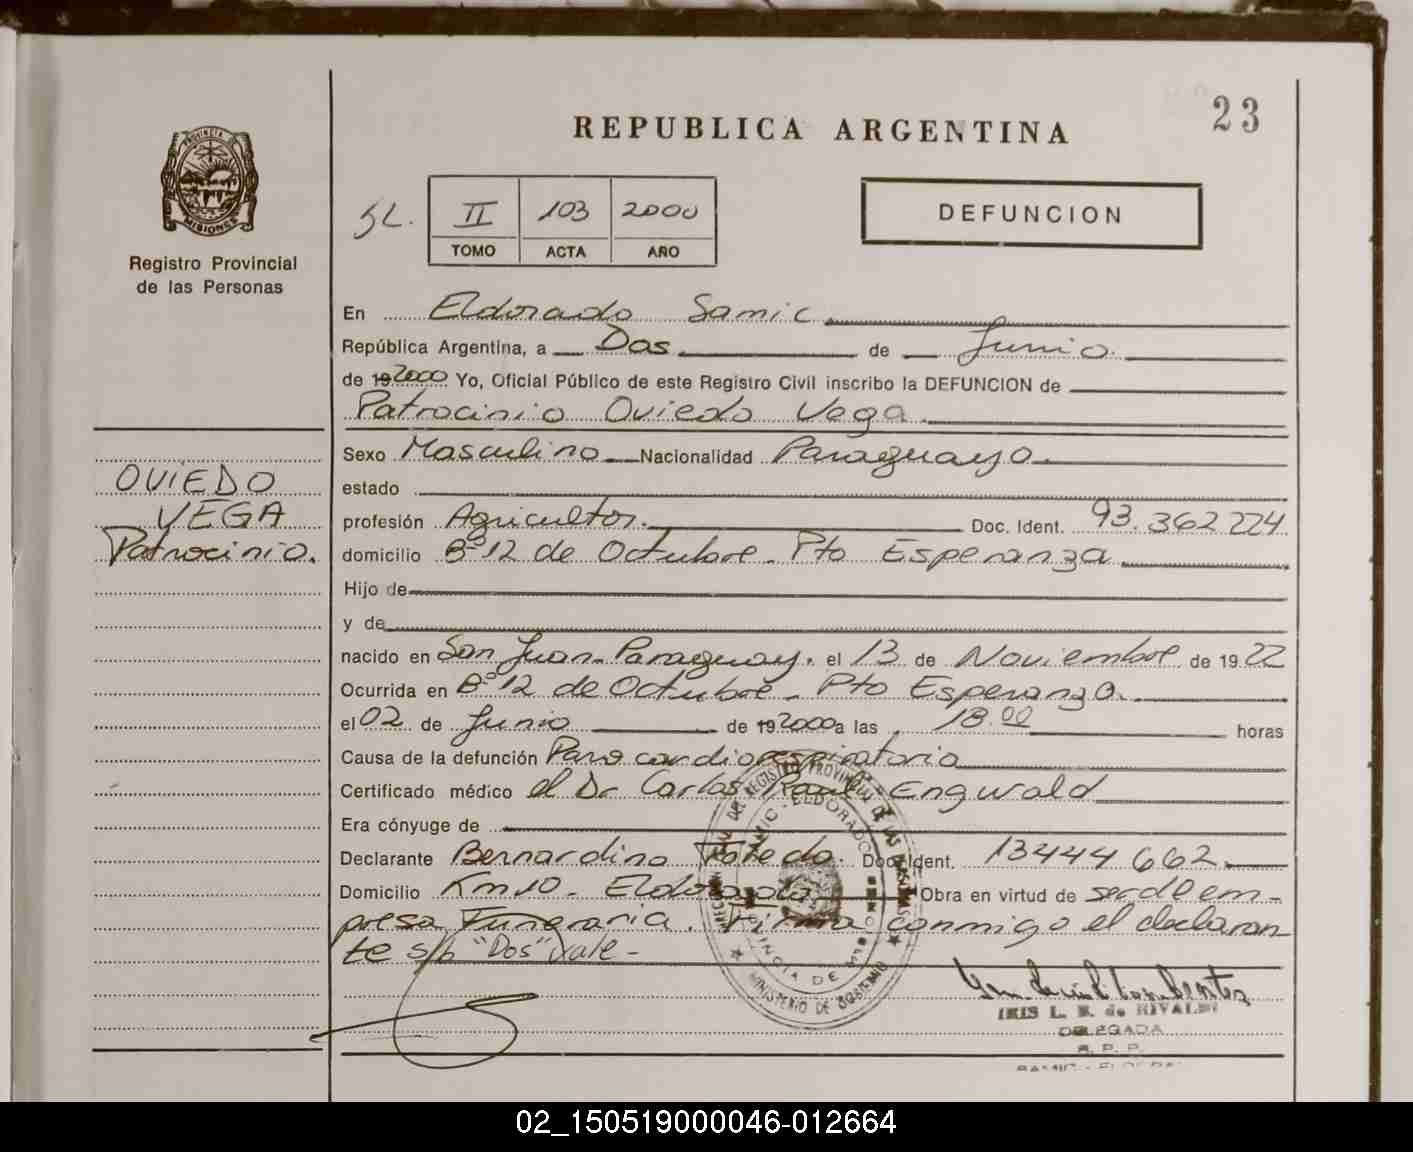 REPUBLICA ARGENTINA
23
PROVINCIA DE
MISIONES
Registro Provincial
de las Personas
SL.
II 103 2000
TOMO ACTA AÑO
DEFUNCION
En Eldorado Samic
República Argentina, a Dos de Junio
de 19 2000 Yo, Oficial Público de este Registro Civil inscribo la DEFUNCION de
Patrocinio Oviedo Vega
OVIEDO
VEGA
Patrocinio.
Sexo Masculino Nacionalidad Paraguayo
estado
profesión Agricultor. Doc. Ident. 93.362224
domicilio Bº 12 de Octubre - Pto Esperanza
Hijo de
y de
nacido en San Juan - Paraguay. el 13 de Noviembre de 19 22
Ocurrida en Bº 12 de Octubre - Pto Esperanza.
el 02 de Junio de 19 2000 a las 18.00 horas
Causa de la defunción Paro cardiorespiratorio
Certificado médico el Dr Carlos Raul Engwald
Era cónyuge de
Declarante Bernardino Toledo. Doc. Ident. 13444662
Domicilio Km 10 - Eldorado Obra en virtud de ser de em-
presa Funeraria. Firma conmigo el declaran-
te s/b "Dos" Vale -
REGISTRO PROVINCIAL DE LAS PERSONAS
SAMIC - ELDORADO
PROVINCIA DE MISIONES
MINISTERIO DE GOBIERNO
IRIS L. B. de RIVALDI
DELEGADA
R. P. P.
SAMIC - ELDORADO
02_150519000046-012664